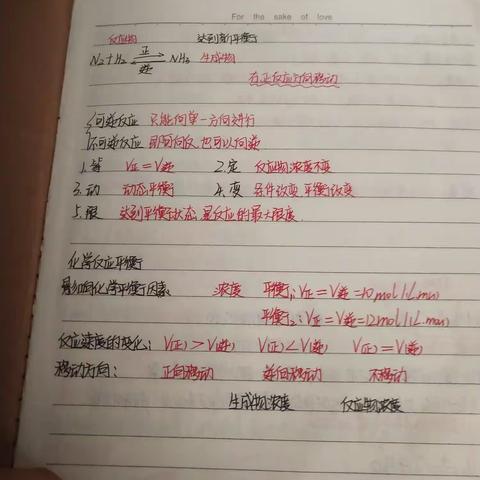 For the sake of love
反应物 达到新平衡
N₂+H₂ ⇌ NH₃ 生成物
正
逆
在正反应方向移动
可逆反应 只能向单一方向进行
不可逆反应 即可向反,也可以向逆
1.等 V正=V逆 2.定 反应物浓度不变
3.动 动态平衡 4.变 条件改变,平衡改变
5.限 达到平衡状态,是反应的最大限度
化学反应平衡
影响化学平衡因素: 浓度 平衡₁:V正=V逆=10mol/(L.min)
平衡₂:V正=V逆=12mol/(L.min)
反应速度的变化: V(正)>V(逆) V(正)<V(逆) V(正)=V(逆)
移动方向: 正向移动 逆向移动 不移动
生成物浓度 反应物浓度